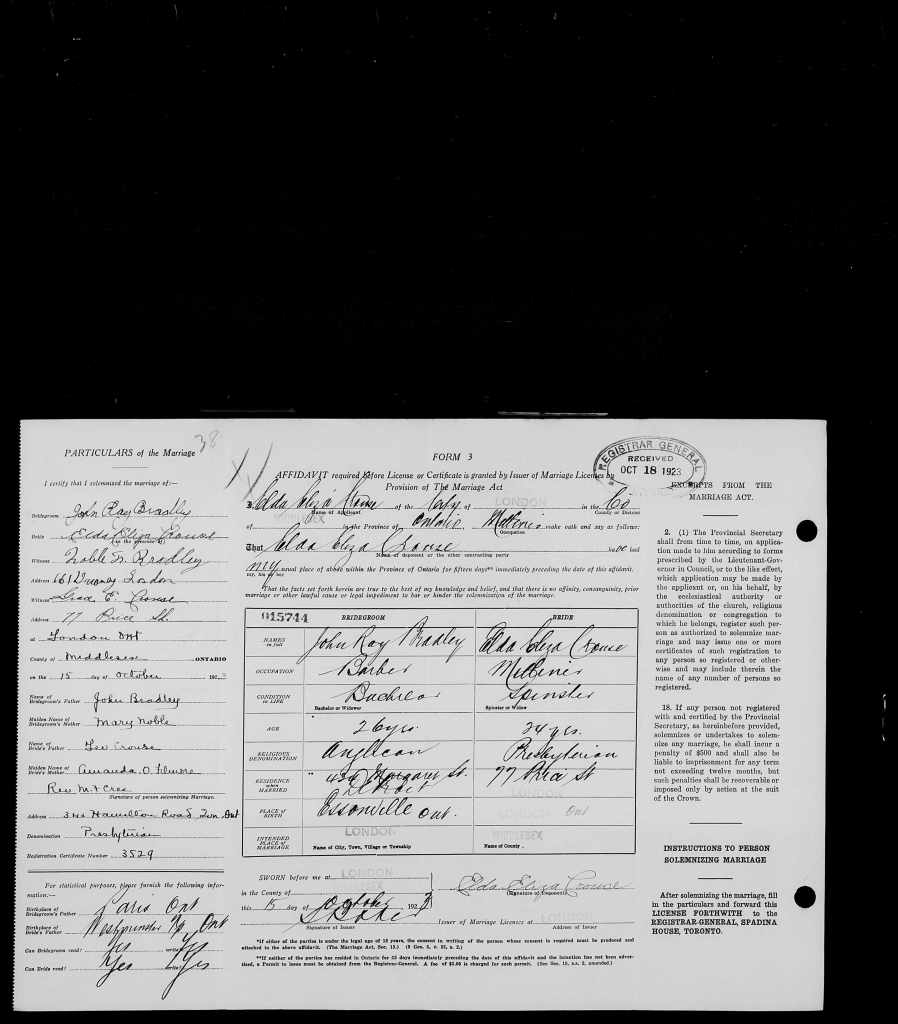 PARTICULARS of the Marriage
38
I certify that I solemnized the marriage of:—
Bridegroom John Ray Bradley
Bride Elda Eliza Crouse
(in the presence of)
Witness Noble F. Bradley
Address 661 London
Witness E. Crouse
Address 77 Price St.
at London Ont
County of Middlesex ONTARIO
on the 15 day of October 192
Name of Bridegroom's Father John Bradley
Maiden Name of Bridegroom's Mother Mary Noble
Name of Bride's Father Crouse
Maiden Name of Bride's Mother Amanda O. Filmore
Rev. M. F. Cree
Signature of person solemnizing Marriage.
Address 343 Hamilton Road Lon. Ont
Denomination Presbyterian
Registration Certificate Number 3529
For statistical purposes, please furnish the following information.—
Birthplace of Bridegroom's Father Paris Ont
Birthplace of Bride's Father Westminster Tp. Ont
Can Bridegroom read? Yes write? Yes
Can Bride read? Yes write? Yes
FORM 3
AFFIDAVIT required before License or Certificate is granted by Issuer of Marriage Licenses by
Provision of The Marriage Act
I, Elda Eliza Crouse of the City of LONDON in the Co
Name of Applicant
County or District
of in the Province of Ontario, Milliner make oath and say as follows:
Occupation
That Elda Eliza Crouse has had
Name of deponent or the other contracting party
my usual place of abode within the Province of Ontario for fifteen days** immediately preceding the date of this affidavit.
my, his or her
That the facts set forth herein are true to the best of my knowledge and belief, and that there is no affinity, consanguinity, prior
marriage or other lawful cause or legal impediment to bar or hinder the solemnization of the marriage.
015744 BRIDEGROOM BRIDE
NAMES in full John Ray Bradley Elda Eliza Crouse
OCCUPATION Barber Milliner
CONDITION IN LIFE Bachelor Spinster
Bachelor or Widower Spinster or Widow
AGE 26 yrs. 24 yrs.
RELIGIOUS DENOMINATION Anglican Presbyterian
RESIDENCE when MARRIED 434 Margaret St. Detroit 77 Price St
LONDON
PLACE OF BIRTH Essonville Ont. LONDON Ont
INTENDED PLACE OF MARRIAGE LONDON MIDDLESEX
Name of City, Town, Village or Township Name of County.
SWORN before me at LONDON
in the County of
Elda Eliza Crouse
(Signature of Deponent)
this 15 day of October 1923
Signature of Issuer
Issuer of Marriage Licenses at LONDON
Address of Issuer
*If either of the parties is under the legal age of 18 years, the consent in writing of the person whose consent is required must be produced and
attached to the above affidavit. (The Marriage Act, Sec. 15.)
**If neither of the parties has resided in Ontario for 15 days immediately preceding the date of this affidavit and the intention has not been advertised, a Permit to issue must be obtained from the Registrar-General. A fee of $5.00 is charged for each permit.
REGISTRAR GENERAL
RECEIVED
OCT 18 1923
EXCERPTS FROM THE
MARRIAGE ACT.
2. (1) The Provincial Secretary
shall from time to time, on application
made to him according to forms
prescribed by the Lieutenant-Governor
in Council, or to the like effect,
which application may be made by
the applicant or, on his behalf, by
the ecclesiastical authority or
authorities of the church, religious
denomination or congregation to
which he belongs, register such person
as authorized to solemnize marriage
and may issue one or more
certificates of such registration to
any person so registered or otherwise
and may include therein the
name of any number of persons so
registered.
18. If any person not registered
with and certified by the Provincial
Secretary, as hereinbefore provided,
solemnizes or undertakes to solemnize
any marriage, he shall incur a
penalty of $500 and shall also be
liable to imprisonment for any term
not exceeding twelve months, but
such penalties shall be recoverable or
imposed only by action at the suit
of the Crown.
INSTRUCTIONS TO PERSON
SOLEMNIZING MARRIAGE
After solemnizing the marriage, fill
in the particulars and forward this
LICENSE FORTHWITH to the
REGISTRAR-GENERAL, SPADINA
HOUSE, TORONTO.